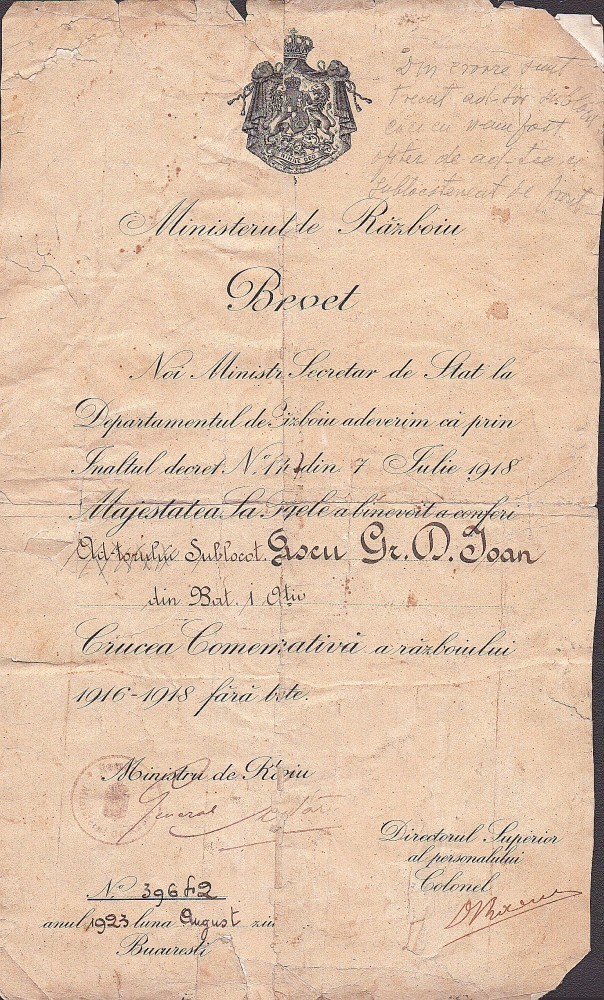 NIHIL SINE DEO
Din eroare sunt
trecut
căci eu n'am fost
ofițer de
Sublocotenent de
Ministerul de Războiu
Brevet
Noi Ministr Secretar de Stat la
Departamentul de adeverim că prin
Inaltul decret No. din 7 Iulie 1918
Majestatea Sa Regele a binevoit a conferi
Ad-torului Sublocot. Gr. D. Ioan
din Bat. 1
Crucea Comemorativă a războiului
1916-1918 fără
Ministru de
General
Directorul Superior
al personalului
Colonel
No
anul 1923 luna August
București